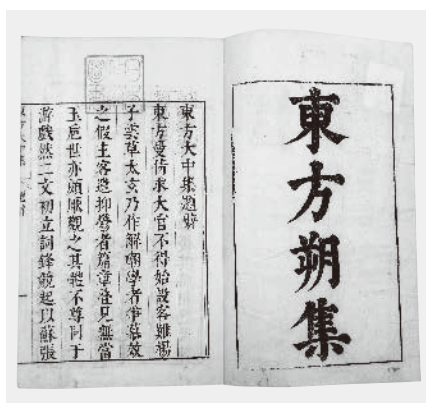 東方朔集
東方大中集題辭
東方曼倩求大官不得始設客難揚
子雲草太玄乃作解嘲學者爭慕效
之假主客遣抑鬱者篇章疊見無當
玉巵世亦頗厭觀之其體不尊同于
游戲然二文初立詞鋒競起以蘇張